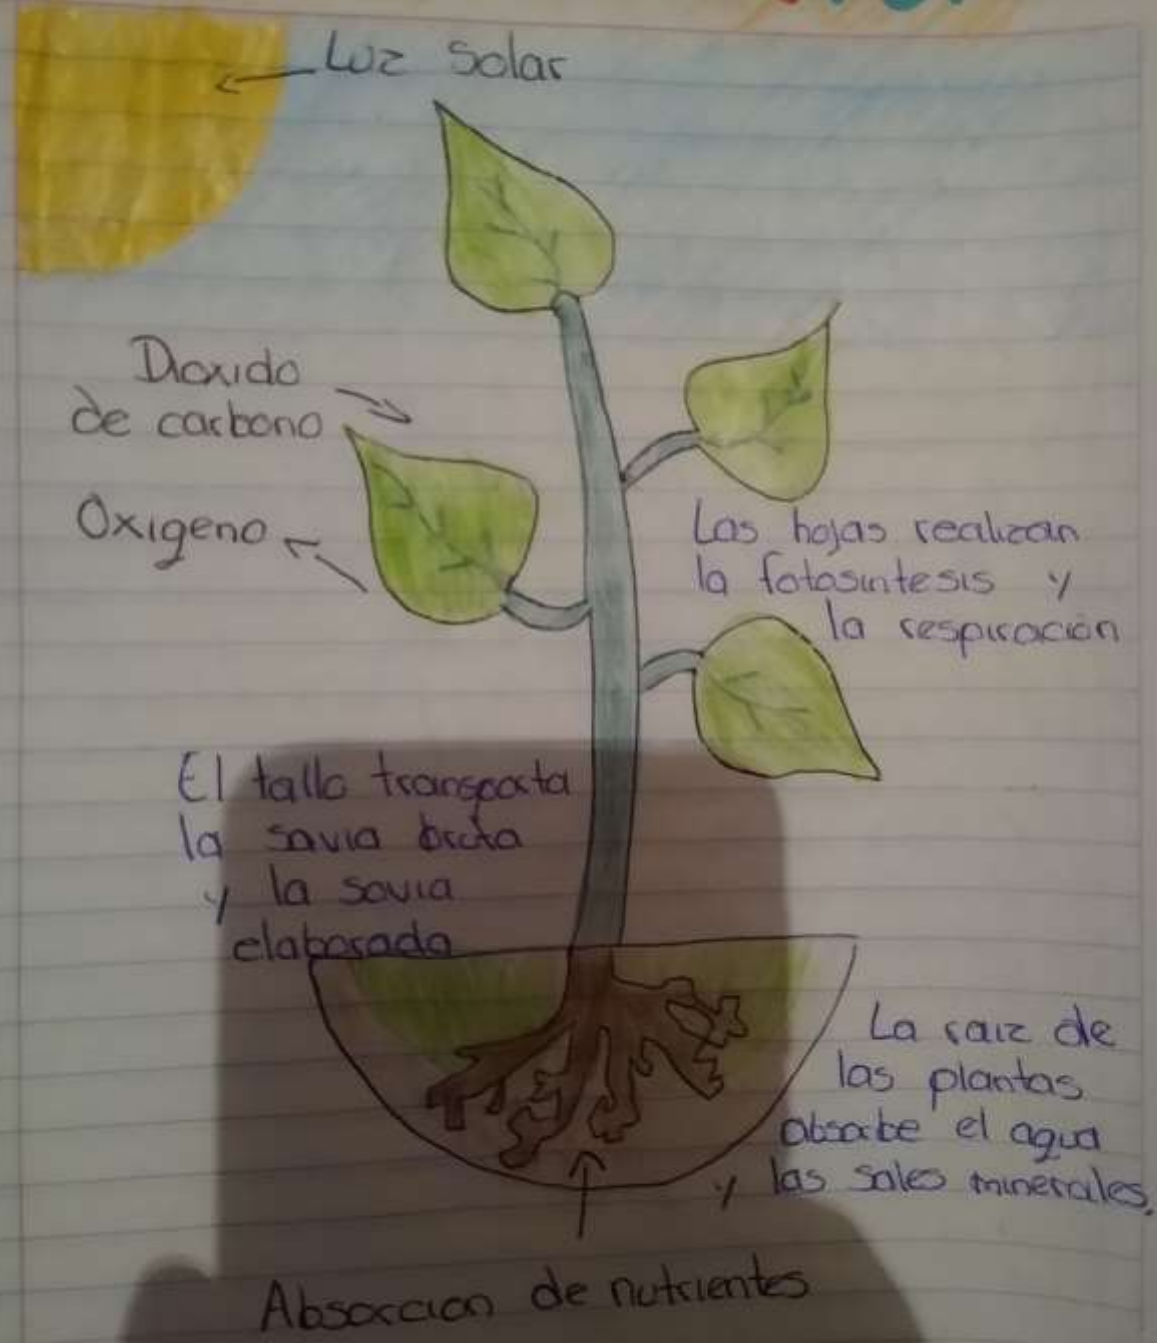 Luz Solar
Dioxido
de carbono
Oxigeno
Las hojas realizan
la fotosintesis y
la respiración
El tallo transporta
la savia bruta
y la savia
elaborada
La raiz de
las plantas
absorbe el agua
y las sales minerales.
Absorcion de nutrientes